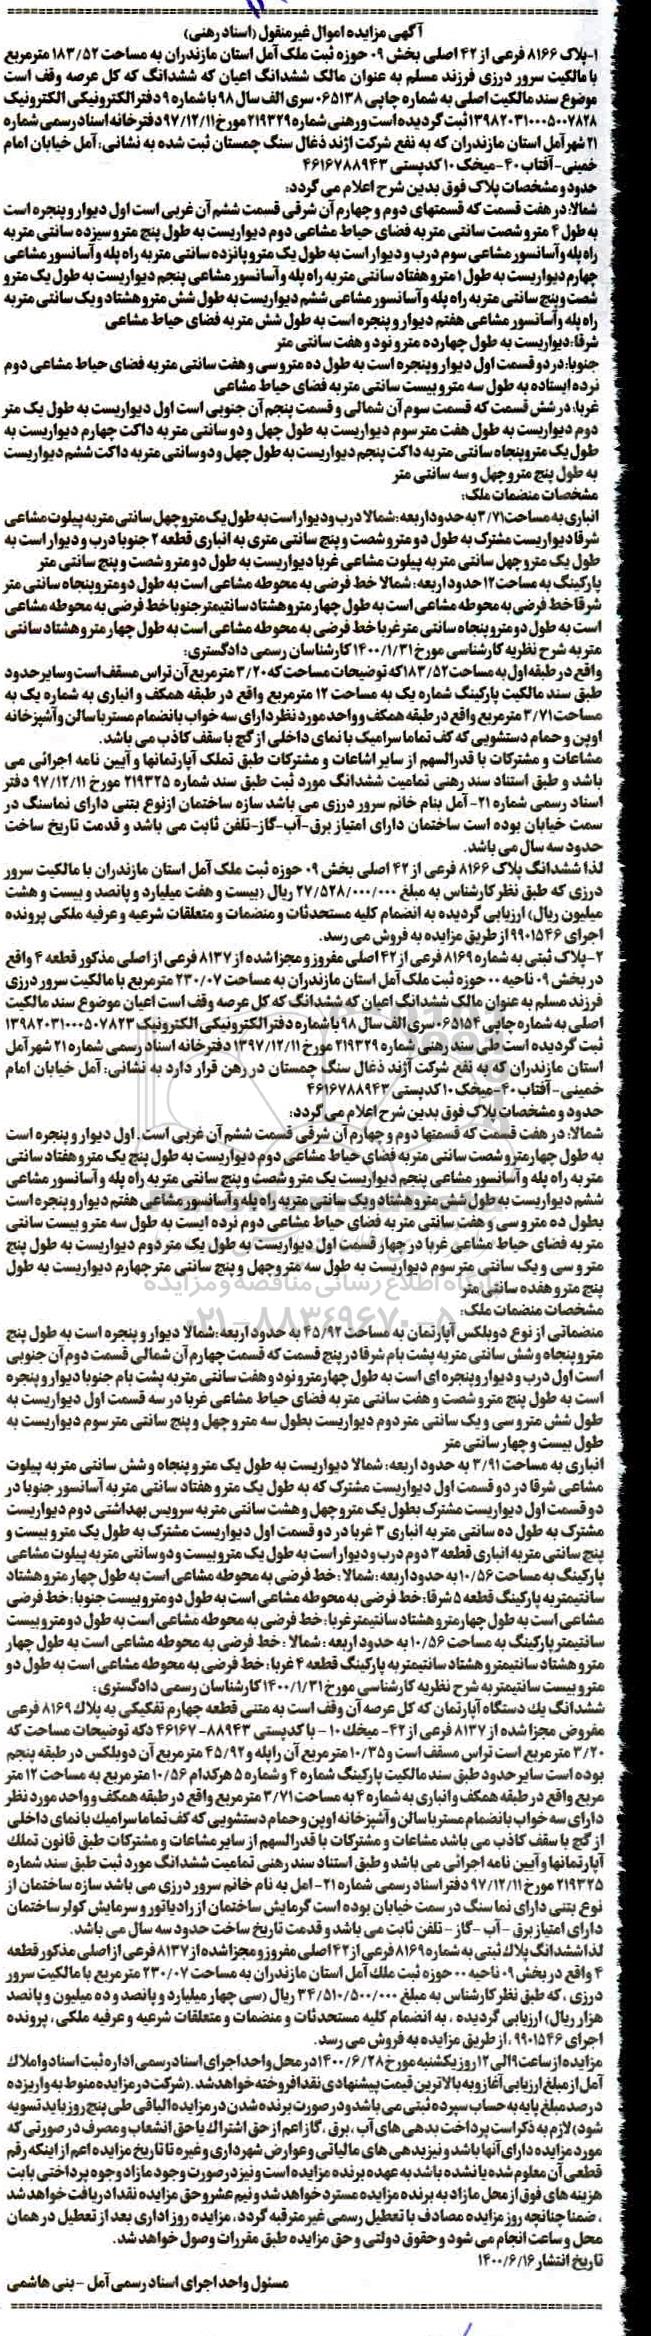 آگهی مزایده اموال غیرمنقول (اسناد رهنی)
۱-پلاک ۸۱۶۶ فرعی از ۴۲ اصلی بخش ۰۹ حوزه ثبت ملک آمل استان مازندران به مساحت ۱۸۳/۵۲ مترمربع
با مالکیت سرور درزی فرزند مسلم به عنوان مالک ششدانگ اعیان که ششدانگ که کل عرصه وقف است
موضوع سند مالکیت اصلی به شماره چاپی ۰۶۵۱۳۸ سری الف سال ۹۸ با شماره ۹ دفتر الکترونیکی الکترونیک
۱۳۹۸۲۰۳۱۰۰۰۵۰۰۷۸۲۸ ثبت گردیده است ورهنی شماره ۲۱۹۳۲۹ مورخ ۹۷/۱۲/۱۱ دفترخانه اسناد رسمی شماره
۲۱ شهر آمل استان مازندران که به نفع شرکت اژند ذغال سنگ چمستان ثبت شده به نشانی: آمل خیابان امام
خمینی- آفتاب ۴۰ -میخک ۱۰ کدپستی ۴۶۱۶۷۸۸۹۴۳
حدود و مشخصات پلاک فوق بدین شرح اعلام می گردد:
شمالا: در هفت قسمت که قسمتهای دوم و چهارم آن شرقی قسمت ششم آن غربی است اول دیوار و پنجره است
به طول ۴ متر و شصت سانتی متر به فضای حیاط مشاعی دوم دیواریست به طول پنج متر و سیزده سانتی متر به
راه پله و آسانسور مشاعی سوم درب و دیوار است به طول یک متر و پانزده سانتی متر به راه پله و آسانسور مشاعی
چهارم دیواریست به طول ۱ متر و هفتاد سانتی متر به راه پله و آسانسور مشاعی پنجم دیواریست به طول یک متر و
شصت و پنج سانتی متر به راه پله و آسانسور مشاعی ششم دیواریست به طول شش متر و هشتاد و یک سانتی متر به
راه پله و آسانسور مشاعی هفتم دیوار و پنجره است به طول شش متر به فضای حیاط مشاعی
شرقا: دیواریست به طول چهارده متر و نود و هفت سانتی متر
جنوبا: در دو قسمت اول دیوار و پنجره است به طول ده متر و سی و هفت سانتی متر به فضای حیاط مشاعی دوم
نرده ایستاده به طول سه متر و بیست سانتی متر به فضای حیاط مشاعی
غربا: در شش قسمت که قسمت سوم آن شمالی و قسمت پنجم آن جنوبی است اول دیواریست به طول یک متر
دوم دیواریست به طول هفت متر سوم دیواریست به طول چهل و دو سانتی متر به داکت چهارم دیواریست به
طول یک متر و پنجاه سانتی متر به داکت پنجم دیواریست به طول چهل و دو سانتی متر به داکت ششم دیواریست
به طول پنج متر و چهل و سه سانتی متر
مشخصات منضمات ملک:
انباری به مساحت ۳/۷۱ به حدود اربعه: شمالا درب و دیوار است به طول یک متر و چهل سانتی متر به پیلوت مشاعی
شرقا دیواریست مشترک به طول دو متر و شصت و پنج سانتی متری به انباری قطعه ۲ جنوبا درب و دیوار است به
طول یک متر و چهل سانتی متر به پیلوت مشاعی غربا دیواریست به طول دو متر و شصت و پنج سانتی متر
پارکینگ به مساحت ۱۲ حدود اربعه: شمالا خط فرضی به محوطه مشاعی است به طول دو متر و پنجاه سانتی متر
شرقا خط فرضی به محوطه مشاعی است به طول چهار متر و هشتاد سانتیمتر جنوبا خط فرضی به محوطه مشاعی
است به طول دو متر و پنجاه سانتی متر غربا خط فرضی به محوطه مشاعی است به طول چهار متر و هشتاد سانتی
متر به شرح نظریه کارشناسی مورخ ۱۴۰۰/۱/۳۱ کارشناسان رسمی دادگستری:
واقع در طبقه اول به مساحت ۱۸۳/۵۲ که توضیحات مساحت که ۳/۲۰ مترمربع آن تراس مسقف است و سایر حدود
طبق سند مالکیت پارکینگ شماره یک به مساحت ۱۲ مترمربع واقع در طبقه همکف و انباری به شماره یک به
مساحت ۳/۷۱ مترمربع واقع در طبقه همکف و واحد مورد نظر دارای سه خواب بانضمام مستر با سالن و آشپزخانه
اوپن و حمام دستشویی که کف تماما سرامیک با نمای داخلی از گچ با سقف کاذب می باشد.
مشاعات و مشترکات با قدرالسهم از سایر اشاعات و مشترکات طبق تملک آپارتمانها و آیین نامه اجرائی می
باشد و طبق استناد سند رهنی تمامیت ششدانگ مورد ثبت طبق سند شماره ۲۱۹۳۲۵ مورخ ۹۷/۱۲/۱۱ دفتر
اسناد رسمی شماره ۲۱- آمل بنام خانم سرور درزی می باشد سازه ساختمان از نوع بتنی دارای نماسنگ در
سمت خیابان بوده است ساختمان دارای امتیاز برق-آب-گاز-تلفن ثابت می باشد و قدمت تاریخ ساخت
حدود سه سال می باشد.
لذا ششدانگ پلاک ۸۱۶۶ فرعی از ۴۲ اصلی بخش ۰۹ حوزه ثبت ملک آمل استان مازندران با مالکیت سرور
درزی که طبق نظر کارشناس به مبلغ ۲۷/۵۲۸/۰۰۰/۰۰۰ ریال (بیست و هفت میلیارد و پانصد و بیست و هشت
میلیون ریال) ارزیابی گردیده به انضمام کلیه مستحدثات و منضمات و متعلقات شرعیه و عرفیه ملکی پرونده
اجرای ۹۹۰۱۵۴۶ از طریق مزایده به فروش می رسد.
۲-پلاک ثبتی به شماره ۸۱۶۹ فرعی از ۴۲ اصلی مفروز و مجزا شده از ۸۱۳۷ فرعی از اصلی مذکور قطعه ۴ واقع
در بخش ۰۹ ناحیه ۰۰ حوزه ثبت ملک آمل استان مازندران به مساحت ۲۳۰/۰۷ مترمربع با مالکیت سرور درزی
فرزند مسلم به عنوان مالک ششدانگ اعیان که ششدانگ که کل عرصه وقف است اعیان موضوع سند مالکیت
اصلی به شماره چاپی ۰۶۵۱۵۴ سری الف سال ۹۸ با شماره دفتر الکترونیکی الکترونیک ۱۳۹۸۲۰۳۱۰۰۰۵۰۷۸۲۳
ثبت گردیده است طی سند رهنی شماره ۲۱۹۳۲۹ مورخ ۱۳۹۷/۱۲/۱۱ دفترخانه اسناد رسمی شماره ۲۱ شهر آمل
استان مازندران که به نفع شرکت آژند ذغال سنگ چمستان در رهن قرار دارد به نشانی: آمل خیابان امام
خمینی- آفتاب ۴۰-میخک ۱۰ کدپستی ۴۶۱۶۷۸۸۹۴۳
حدود و مشخصات پلاک فوق بدین شرح اعلام می گردد:
شمالا: در هفت قسمت که قسمتها دوم و چهارم آن شرقی قسمت ششم آن غربی است. اول دیوار و پنجره است
به طول چهار متر و شصت سانتی متر به فضای حیاط مشاعی دوم دیواریست به طول پنج یک متر و هفتاد سانتی
متر به راه پله و آسانسور مشاعی پنجم دیواریست یک متر و شصت و پنج سانتی متر به راه پله و آسانسور مشاعی
ششم دیواریست به طول شش متر و هشتاد و یک سانتی متر به راه پله و آسانسور مشاعی هفتم دیوار و پنجره است
بطول ده متر و سی و هفت سانتی متر به فضای حیاط مشاعی دوم نرده ایست به طول سه متر و بیست سانتی
متر به فضای حیاط مشاعی غربا در چهار قسمت اول دیواریست به طول یک متر دوم دیواریست به طول پنج
متر و سی و یک سانتی متر سوم دیواریست به طول سه متر و چهل و پنج سانتی متر چهارم دیواریست به طول
پنج متر و هفده سانتی متر
مشخصات منضمات ملک:
منضماتی از نوع دوبلکس آپارتمان به مساحت ۴۵/۹۲ به حدود اربعه: شمالا دیوار و پنجره است به طول پنج
متر و پنجاه و شش سانتی متر به پشت بام شرقا در پنج قسمت که قسمت چهارم آن شمالی قسمت دوم آن جنوبی
است اول درب و دیوار و پنجره ای است به طول چهار متر و نود و هفت سانتی متر به پشت بام جنوبا دیوار و پنجره
است به طول پنج متر و شصت و هفت سانتی متر به فضای حیاط مشاعی غربا در سه قسمت اول دیواریست به
طول شش متر و سی و یک سانتی متر دوم دیواریست بطول سه متر و چهل و پنج سانتی متر سوم دیواریست به
طول بیست و چهار سانتی متر
انباری به مساحت ۳/۹۱ به حدود اربعه: شمالا دیواریست به طول یک متر و پنجاه و شش سانتی متر به پیلوت
مشاعی شرقا در دو قسمت اول دیواریست مشترک که به طول یک متر و هفتاد سانتی متر به آسانسور جنوبا در
دو قسمت اول دیواریست مشترک بطول یک متر و چهل و هشت سانتی متر به سرویس بهداشتی دوم دیواریست
مشترک به طول ده سانتی متر به انباری ۳ غربا در دو قسمت اول دیواریست مشترک به طول یک متر و بیست و
پنج سانتی متر به انباری قطعه ۳ دوم درب و دیوار است به طول یک متر و بیست و دو سانتی متر به پیلوت مشاعی
پارکینگ به مساحت ۱۰/۵۶ به حدود اربعه: شمالا: خط فرضی به محوطه مشاعی است به طول چهار متر و هشتاد
سانتیمتر به پارکینگ قطعه ۵ شرقا: خط فرضی به محوطه مشاعی است به طول دو متر و بیست جنوبا: خط فرضی
مشاعی است به طول چهار متر و هشتاد سانتیمتر غربا: خط فرضی به محوطه مشاعی است به طول دو متر و بیست
سانتیمتر پارکینگ به مساحت ۱۰/۵۶ به حدود اربعه: شمالا: خط فرضی به محوطه مشاعی است به طول چهار
متر و هشتاد سانتیمتر و هشتاد سانتیمتر به پارکینگ قطعه ۴ غربا: خط فرضی به محوطه مشاعی است به طول دو
متر و بیست سانتیمتر به شرح نظریه کارشناسی مورخ ۱۴۰۰/۱/۳۱ کارشناسان رسمی دادگستری:
ششدانگ یک دستگاه آپارتمان که کل عرصه آن وقف است به متنی قطعه چهارم تفکیکی به پلاک ۸۱۶۹ فرعی
مفروض مجزا شده از ۸۱۳۷ فرعی از ۴۲- میخک ۱۰ - با کدپستی ۸۸۹۴۳-۴۶۱۶۷ دکه توضیحات مساحت که
۳/۲۰ مترمربع است تراس مسقف است و ۱۰/۳۵ متر مربع آن راپله و ۴۵/۹۲ مترمربع آن دوبلکس در طبقه پنجم
بوده است سایر حدود طبق سند مالکیت پارکینگ شماره ۴ و شماره ۵ هرکدام ۱۰/۵۶ متر مربع به مساحت ۱۲ متر
مربع واقع در طبقه همکف و انباری به شماره ۴ به مساحت ۳/۷۱ مترمربع واقع در طبقه همکف و واحد مورد نظر
دارای سه خواب بانضمام مستر با سالن و آشپزخانه اوپن و حمام دستشویی که کف تماما سرامیک با نمای داخلی
از گچ با سقف کاذب می باشد مشاعات و مشترکات با قدرالسهم از سایر مشاعات و مشترکات طبق قانون تملک
آپارتمانها و آیین نامه اجرائی می باشد و طبق استناد سند رهنی تمامیت ششدانگ مورد ثبت طبق سند شماره
۲۱۹۳۲۵ مورخ ۹۷/۱۲/۱۱ دفتر اسناد رسمی شماره ۲۱- امل به نام خانم سرور درزی می باشد سازه ساختمان از
نوع بتنی دارای نما سنگ در سمت خیابان بوده است گرمایش ساختمان از رادیاتور و سرمایش کولر ساختمان
دارای امتیاز برق - آب - گاز - تلفن ثابت می باشد و قدمت تاریخ ساخت حدود سه سال می باشد.
لذا ششدانگ پلاک ثبتی به شماره ۸۱۶۹ فرعی از ۴۲ اصلی مفروز و مجزا شده از ۸۱۳۷ فرعی از اصلی مذکور قطعه
۴ واقع در بخش ۰۹ ناحیه ۰۰ حوزه ثبت ملک آمل استان مازندران به مساحت ۲۳۰/۰۷ مترمربع با مالکیت سرور
درزی، که طبق نظر کارشناس به مبلغ ۳۴/۵۱۰/۵۰۰/۰۰۰ ریال (سی چهار میلیارد و پانصد و ده میلیون و پانصد
هزار ریال) ارزیابی گردیده، به انضمام کلیه مستحدثات و منضمات و متعلقات شرعیه و عرفیه ملکی، پرونده
اجرای ۹۹۰۱۵۴۶، از طریق مزایده به فروش می رسد.
مزایده از ساعت ۹ الی ۱۲ روز یکشنبه مورخ ۱۴۰۰/۶/۲۸ در محل واحد اجرای اسناد رسمی اداره ثبت اسناد و املاک
آمل از مبلغ ارزیابی آغاز و به بالاترین قیمت پیشنهادی نقدا فروخته خواهد شد. (شرکت در مزایده منوط به واریز ده
درصد مبلغ پایه به حساب سپرده ثبتی می باشد و در صورت برنده شدن در مزایده الباقی طی پنج روز باید تسویه
شود) لازم به ذکر است پرداخت بدهی های آب، برق، گاز اعم از حق اشتراک یا حق انشعاب و مصرف در صورتی که
مورد مزایده دارای آنها باشد و نیز بدهی های مالیاتی و عوارض شهرداری و غیره تا تاریخ مزایده اعم از اینکه رقم
قطعی آن معلوم شده یا نشده باشد به عهده برنده مزایده است و نیز در صورت وجود مازاد وجوه پرداختی بابت
هزینه های فوق از محل مازاد به برنده مزایده مسترد خواهد شد و نیم عشر و حق مزایده نقدا دریافت خواهد شد
، ضمنا چنانچه روز مزایده مصادف با تعطیل رسمی غیر مترقبه گردد، مزایده روز اداری بعد از تعطیل در همان
محل و ساعت انجام می شود و حقوق دولتی و حق مزایده طبق مقررات وصول خواهد شد.
تاریخ انتشار ۱۴۰۰/۶/۱۶
مسئول واحد اجرای اسناد رسمی آمل - بنی هاشمی
پایگاه اطلاع رسانی مناقصه و مزایده
۰۲۱-۸۸۳۴۹۶۷۰-۵